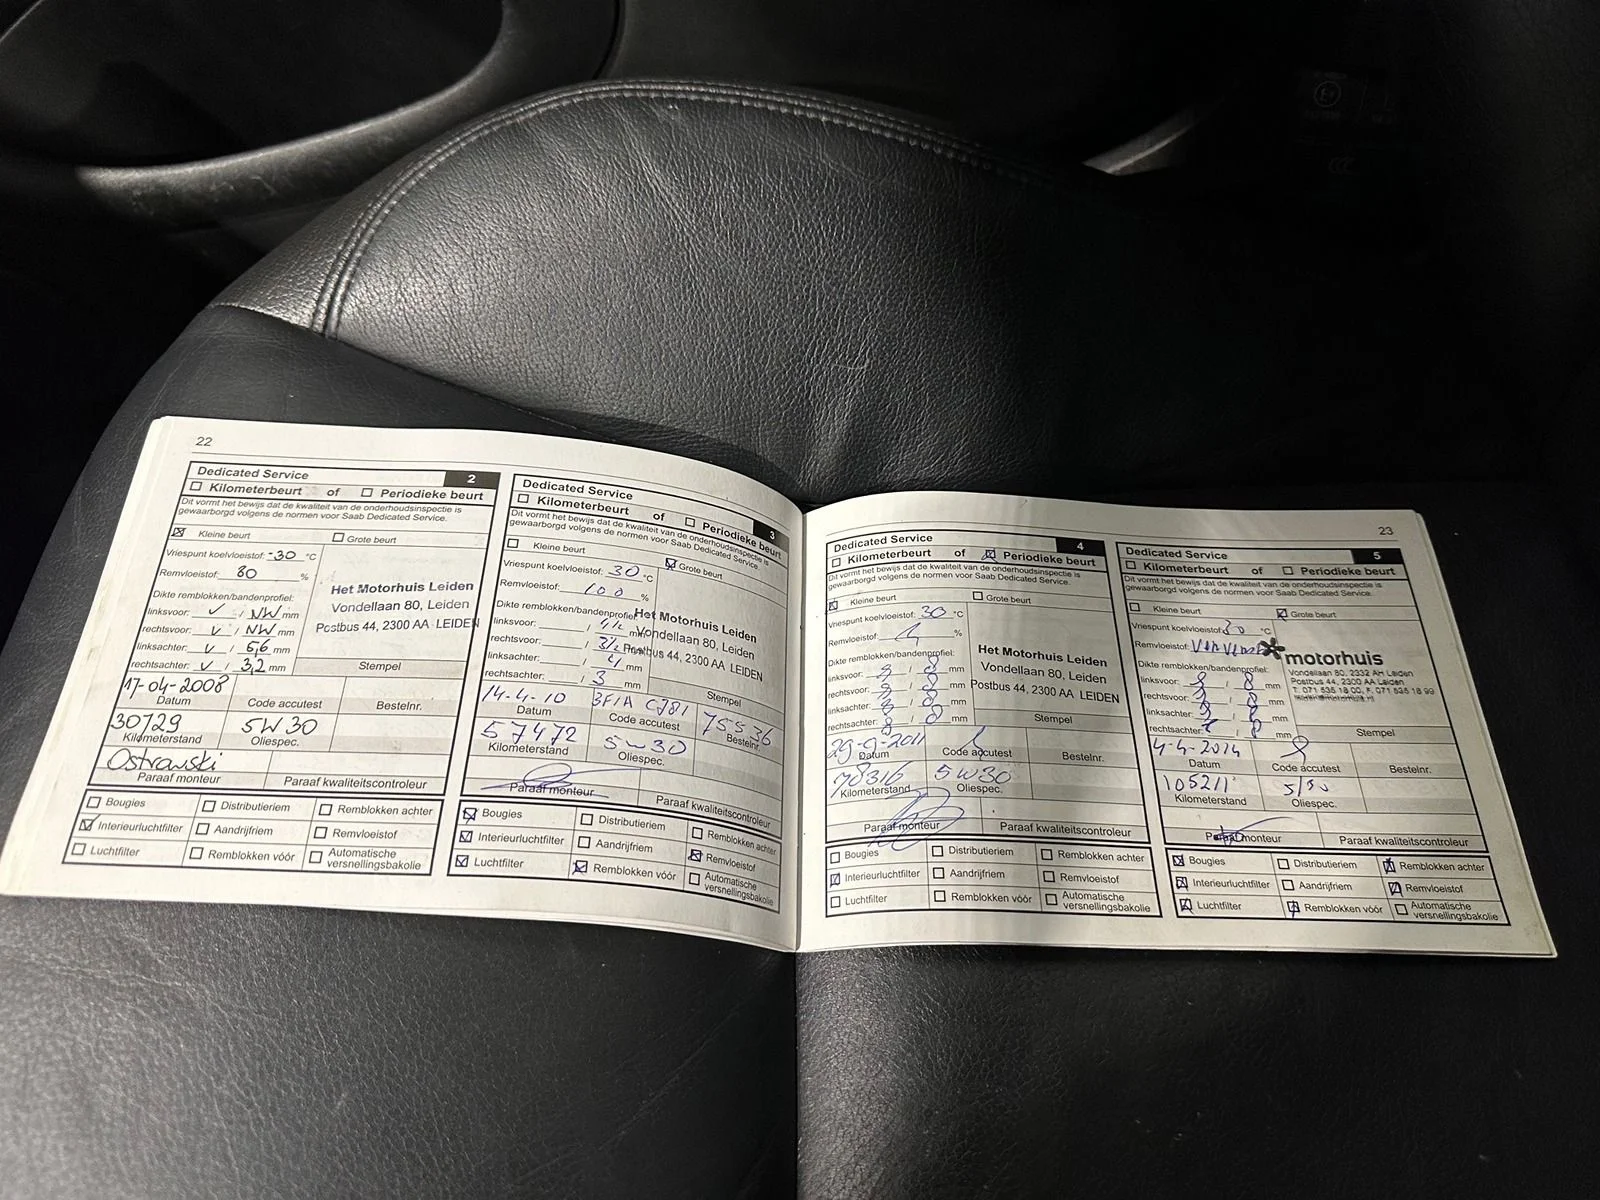 22
Dedicated Service 2
Kilometerbeurt of Periodieke beurt
Dit vormt het bewijs dat de kwaliteit van de onderhoudsinspectie is
gewaarborgd volgens de normen voor Saab Dedicated Service.
Kleine beurt Grote beurt
Vriespunt koelvloeistof: -30 °C
Remvloeistof: 80 %
Dikte remblokken/bandenprofiel:
linksvoor: V / NW mm
rechtsvoor: V / NW mm
linksachter: V / 5,6 mm
rechtsachter: V / 3,2 mm
Het Motorhuis Leiden
Vondellaan 80, Leiden
Postbus 44, 2300 AA LEIDEN
Stempel
17-04-2008
Datum Code accutest Bestelnr.
30729 5W30
Kilometerstand Oliespec.
Ostrowski
Paraaf monteur Paraaf kwaliteitscontroleur
Bougies Distributieriem Remblokken achter
Interieurluchtfilter Aandrijfriem Remvloeistof
Luchtfilter Remblokken vóór Automatische
versnellingsbakolie
Dedicated Service 3
Kilometerbeurt of Periodieke beurt
Dit vormt het bewijs dat de kwaliteit van de onderhoudsinspectie is
gewaarborgd volgens de normen voor Saab Dedicated Service.
Kleine beurt Grote beurt
Vriespunt koelvloeistof: 30 °C
Remvloeistof: 100 %
Dikte remblokken/bandenprofiel:
linksvoor: / mm
rechtsvoor: /
linksachter: / 4 mm
rechtsachter: / 3 mm
Het Motorhuis Leiden
Vondellaan 80, Leiden
Postbus 44, 2300 AA LEIDEN
Stempel
14-4-10 3F1A CJ81 75536
Datum Code accutest Bestelnr.
57472 5W30
Kilometerstand Oliespec.
Paraaf monteur Paraaf kwaliteitscontroleur
Bougies Distributieriem Remblokken achter
Interieurluchtfilter Aandrijfriem Remvloeistof
Luchtfilter Remblokken vóór Automatische
versnellingsbakolie
23
Dedicated Service 4
Kilometerbeurt of Periodieke beurt
Dit vormt het bewijs dat de kwaliteit van de onderhoudsinspectie is
gewaarborgd volgens de normen voor Saab Dedicated Service.
Kleine beurt Grote beurt
Vriespunt koelvloeistof: 30 °C
Remvloeistof: %
Dikte remblokken/bandenprofiel:
linksvoor: 8 / 8 mm
rechtsvoor: 8 / 8 mm
linksachter: 8 / 8 mm
rechtsachter: 8 / 8 mm
Het Motorhuis Leiden
Vondellaan 80, Leiden
Postbus 44, 2300 AA LEIDEN
Stempel
29-9-2011
Datum Code accutest Bestelnr.
78316 5W30
Kilometerstand Oliespec.
Paraaf monteur Paraaf kwaliteitscontroleur
Bougies Distributieriem Remblokken achter
Interieurluchtfilter Aandrijfriem Remvloeistof
Luchtfilter Remblokken vóór Automatische
versnellingsbakolie
Dedicated Service 5
Kilometerbeurt of Periodieke beurt
Dit vormt het bewijs dat de kwaliteit van de onderhoudsinspectie is
gewaarborgd volgens de normen voor Saab Dedicated Service.
Kleine beurt Grote beurt
Vriespunt koelvloeistof: 30 °C
Remvloeistof:
Dikte remblokken/bandenprofiel:
linksvoor: 8 / 8 mm
rechtsvoor: 8 / 8 mm
linksachter: 8 / 8 mm
rechtsachter: 8 / 8 mm
motorhuis
Vondellaan 80, 2332 AH Leiden
Postbus 44, 2300 AA Leiden
T. 071 535 18 00, F. 071 535 18 99
Stempel
4-4-2014
Datum Code accutest Bestelnr.
105211 5/30
Kilometerstand Oliespec.
Paraaf monteur Paraaf kwaliteitscontroleur
Bougies Distributieriem Remblokken achter
Interieurluchtfilter Aandrijfriem Remvloeistof
Luchtfilter Remblokken vóór Automatische
versnellingsbakolie